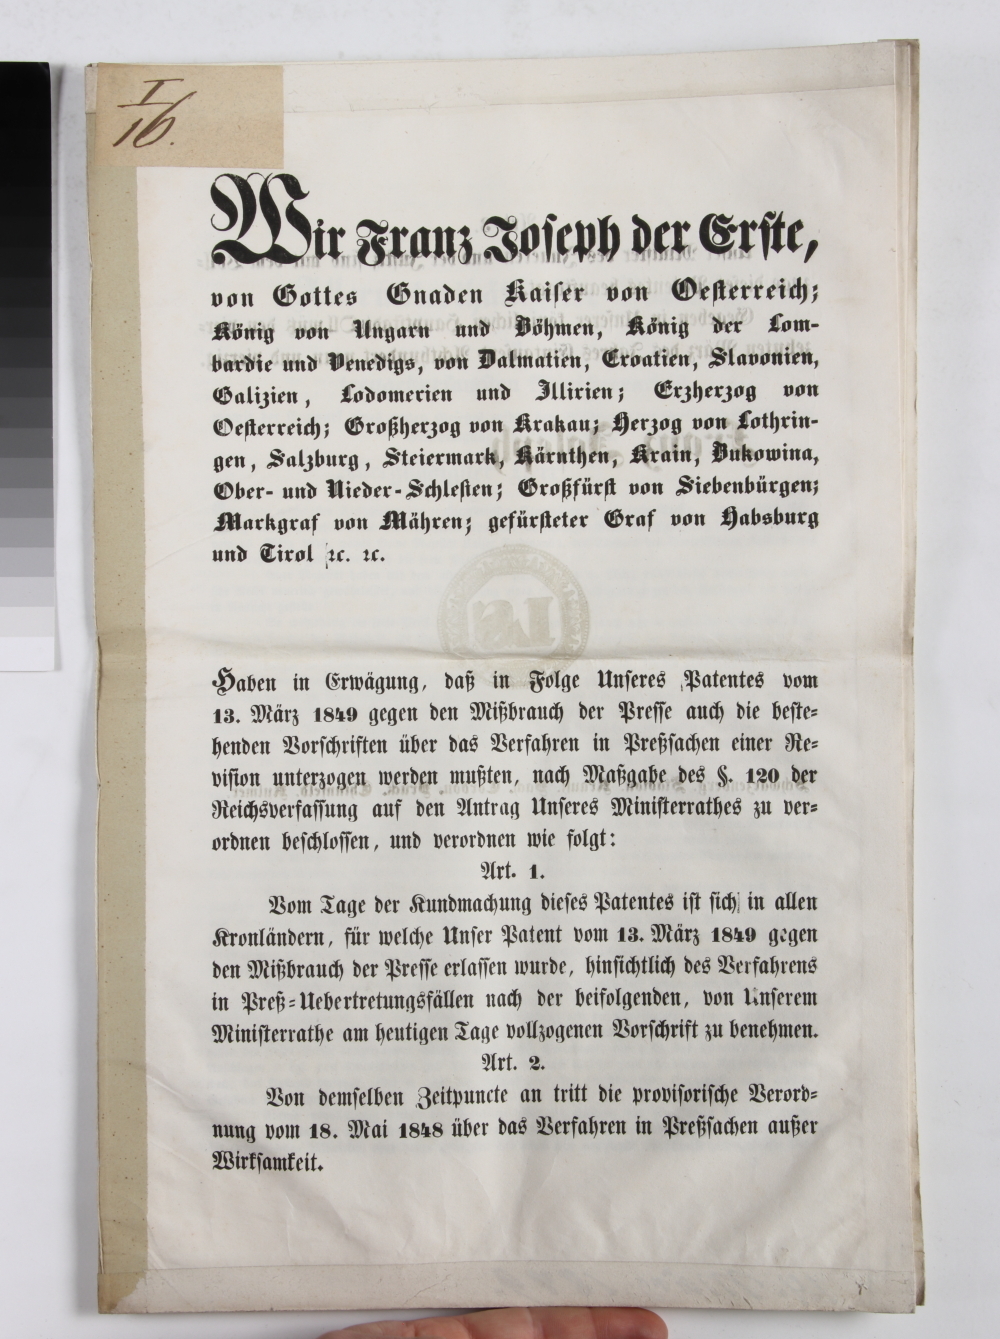 I
16.
Wir Franz Joseph der Erste,
von Gottes Gnaden Kaiser von Oesterreich;
König von Ungarn und Böhmen, König der Lom-
bardie und Venedigs, von Dalmatien, Croatien, Slavonien,
Galizien, Lodomerien und Illirien; Erzherzog von
Oesterreich; Großherzog von Krakau; Herzog von Lothrin-
gen, Salzburg, Steiermark, Kärnthen, Krain, Bukowina,
Ober- und Nieder-Schlesien; Großfürst von Siebenbürgen;
Markgraf von Mähren; gefürsteter Graf von Habsburg
und Tirol ꝛc. ꝛc.
Haben in Erwägung, daß in Folge Unseres Patentes vom
13. März 1849 gegen den Mißbrauch der Presse auch die beste-
henden Vorschriften über das Verfahren in Preßsachen einer Re-
vision unterzogen werden mußten, nach Maßgabe des §. 120 der
Reichsverfassung auf den Antrag Unseres Ministerrathes zu ver-
ordnen beschlossen, und verordnen wie folgt:
Art. 1.
Vom Tage der Kundmachung dieses Patentes ist sich in allen
Kronländern, für welche Unser Patent vom 13. März 1849 gegen
den Mißbrauch der Presse erlassen wurde, hinsichtlich des Verfahrens
in Preß-Uebertretungsfällen nach der beifolgenden, von Unserem
Ministerrathe am heutigen Tage vollzogenen Vorschrift zu benehmen.
Art. 2.
Von demselben Zeitpuncte an tritt die provisorische Verord-
nung vom 18. Mai 1848 über das Verfahren in Preßsachen außer
Wirksamkeit.